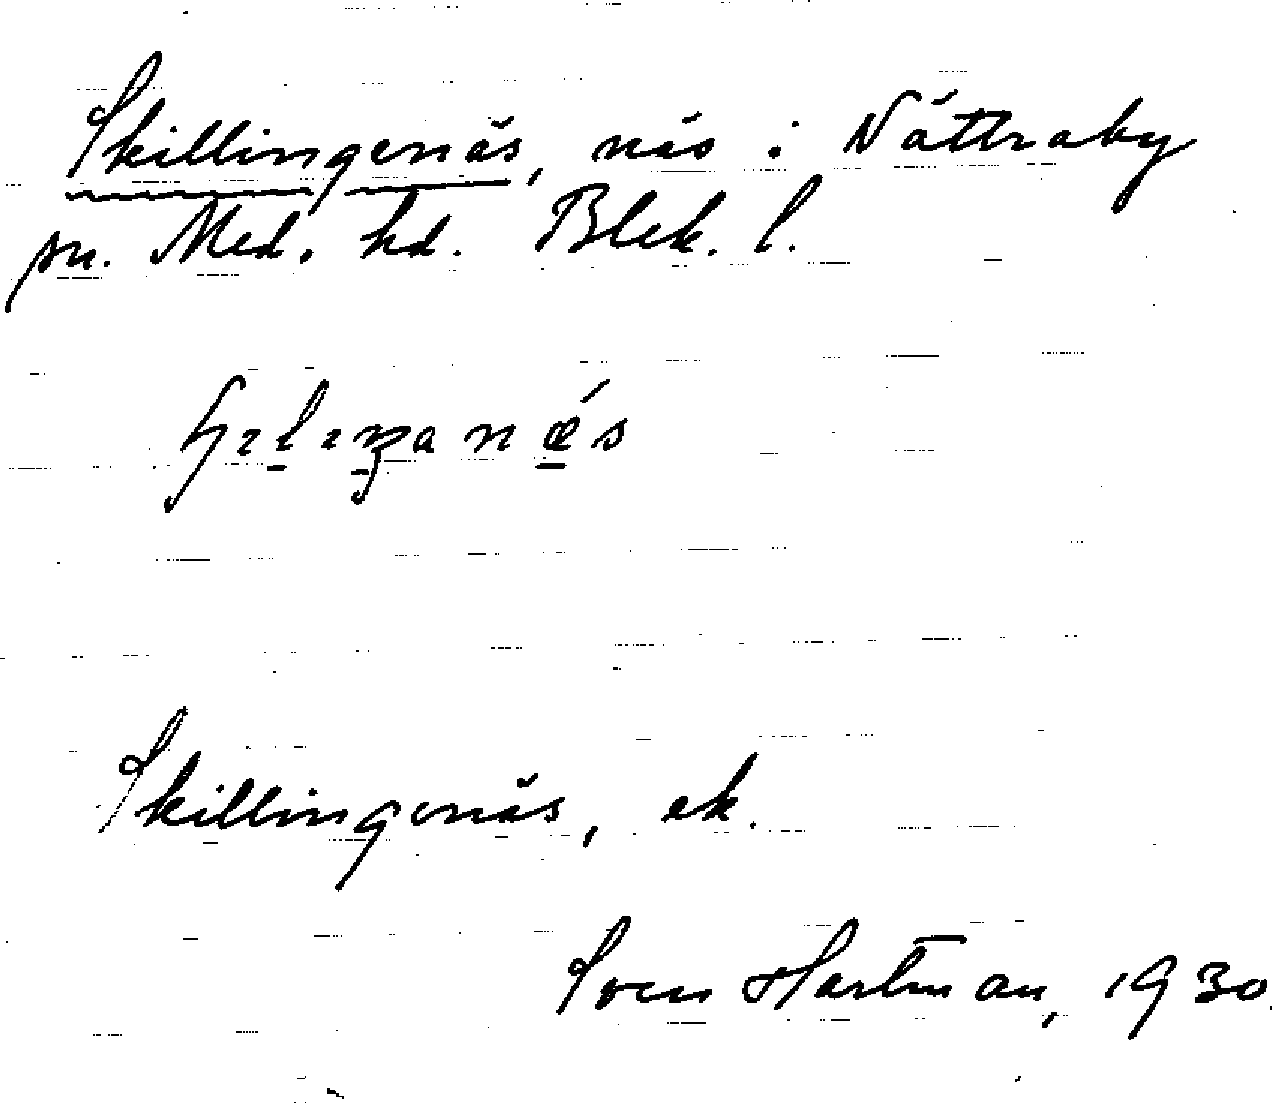 Skillingenäs, näs i Nättraby
sn. Med. hd. Blek. l.
Skillingenäs, ek.
Sven Hartman, 1930.